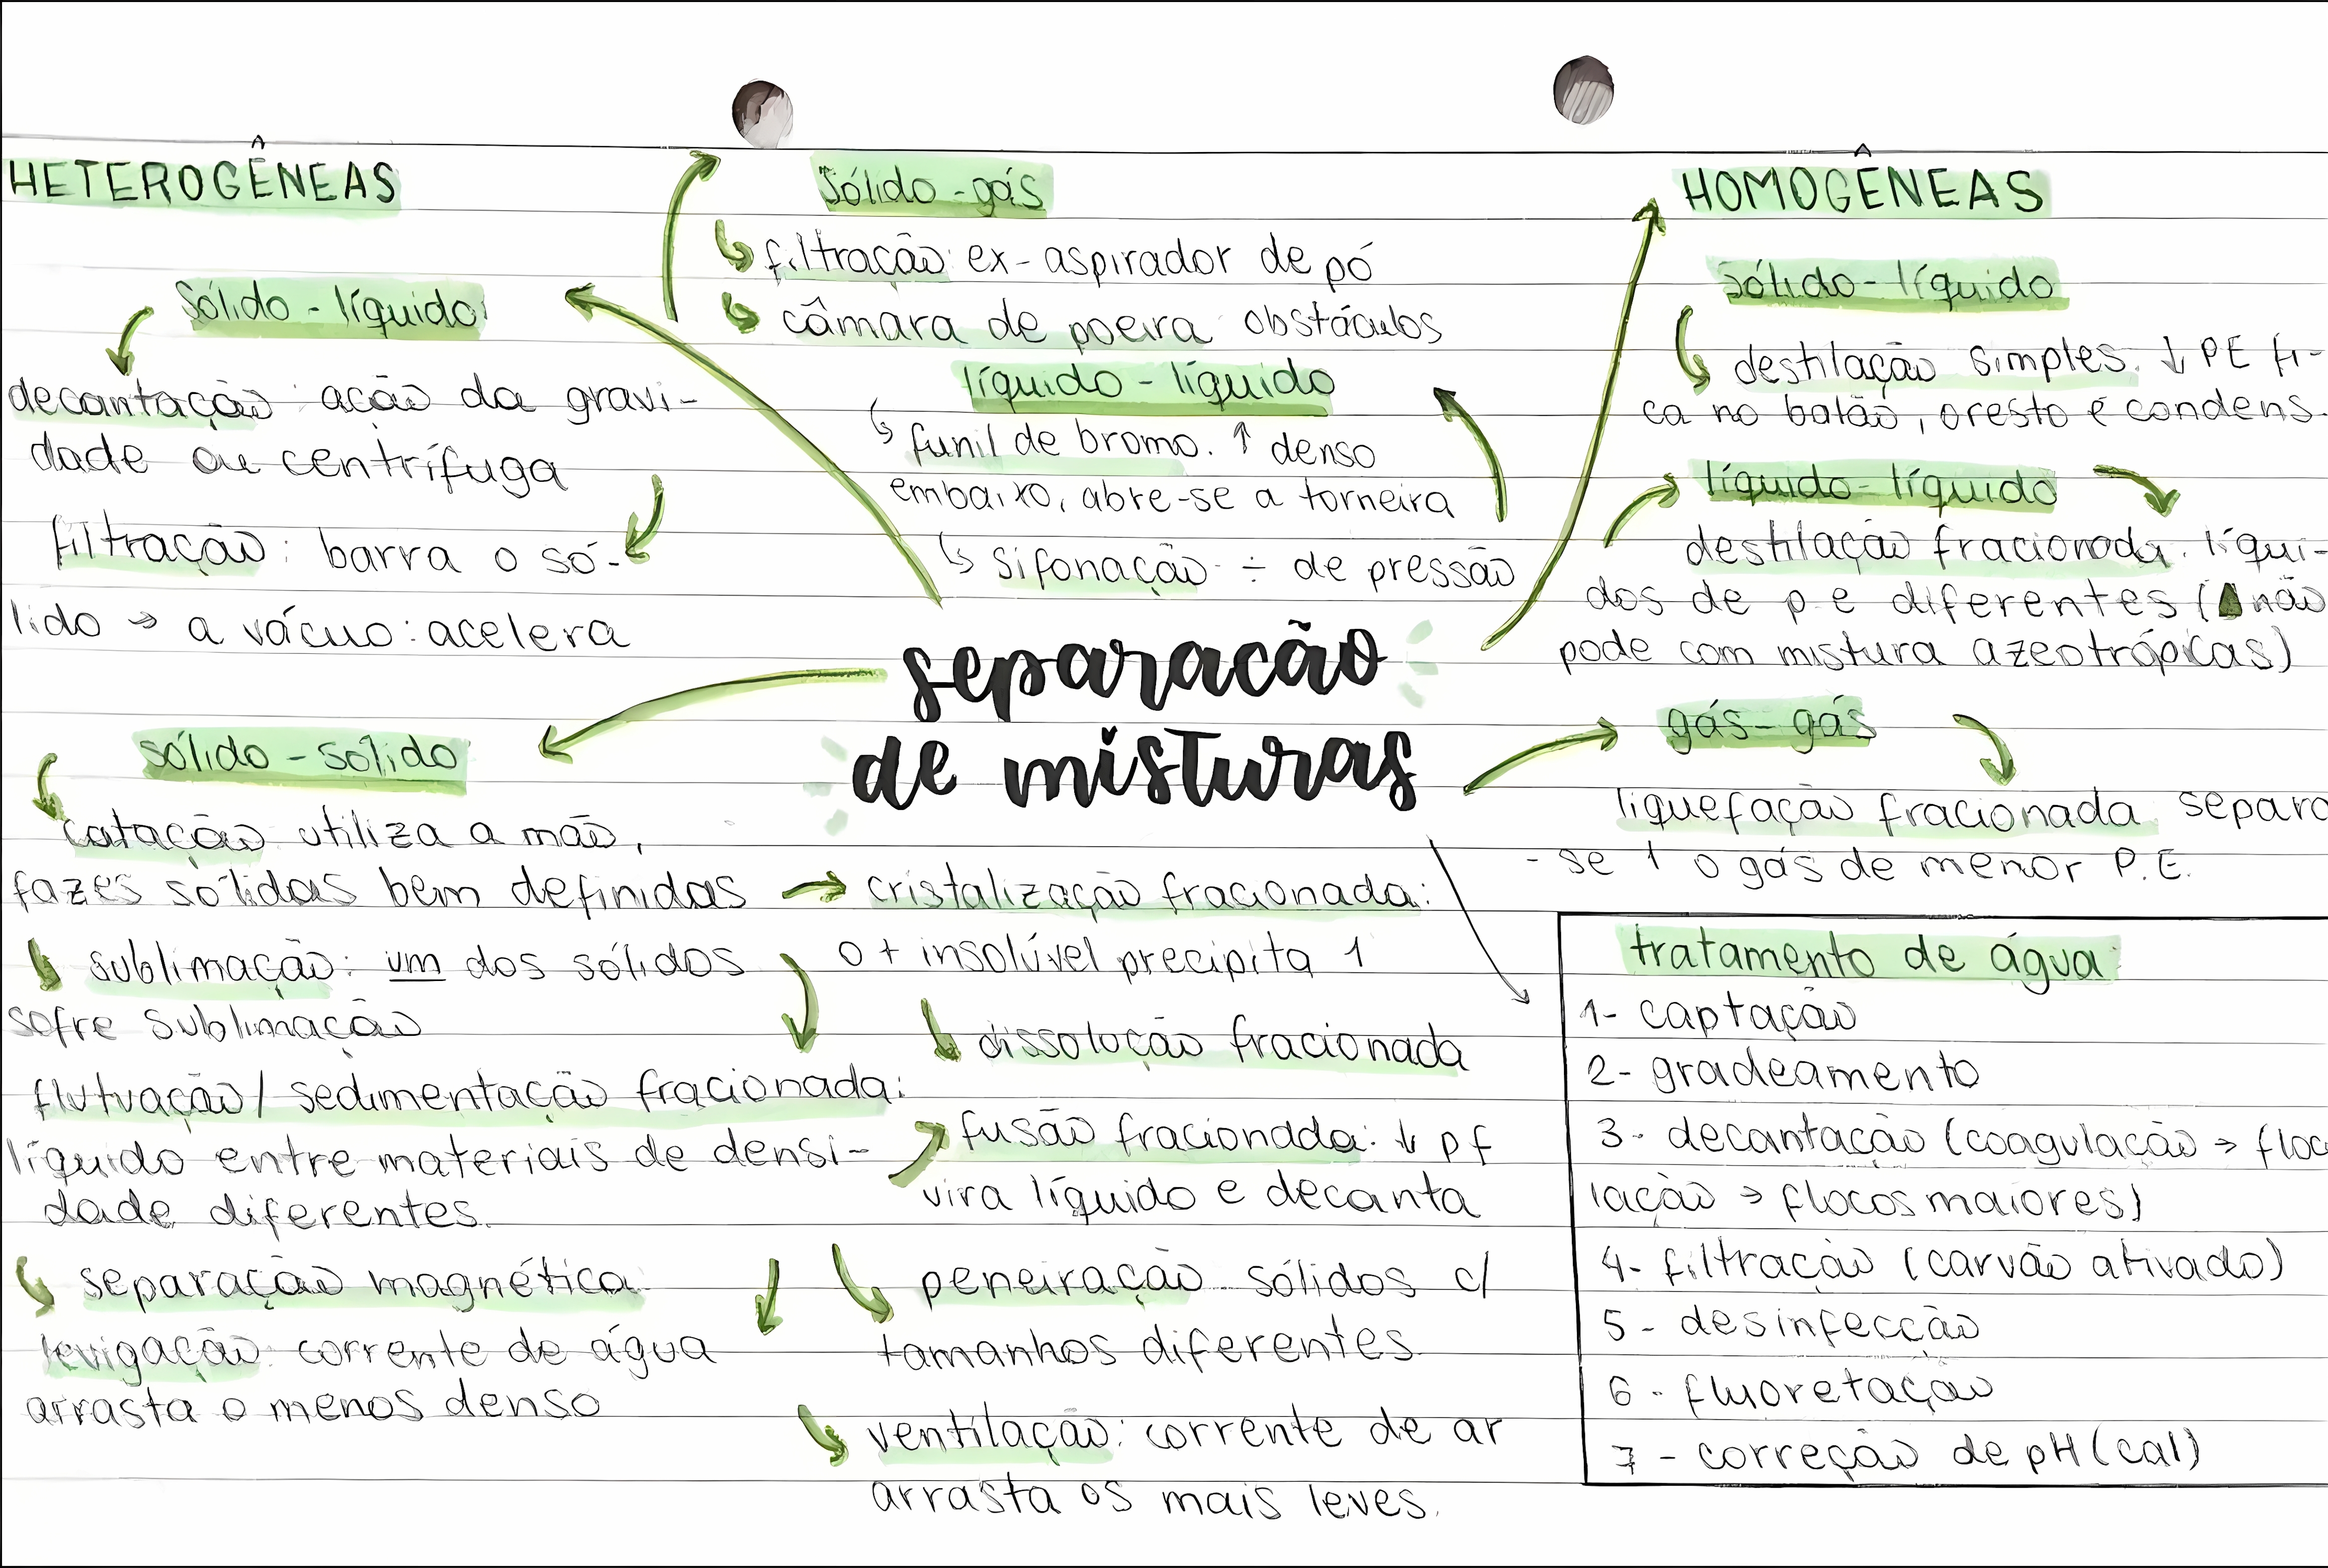 HETEROGÊNEAS
sólido - líquido
decantação: ação da gravi-
dade ou centrífuga
filtração: barra o só-
lido → a vácuo: acelera
sólido - sólido
catação utiliza a mão,
fazes sólidas bem definidas
sublimação: um dos sólidos
sofre sublimação
flutuação / sedimentação fracionada:
líquido entre materiais de densi-
dade diferentes.
separação magnética
levigação: corrente de água
arrasta o menos denso
sólido - gás
filtração: ex - aspirador de pó
câmara de poeira obstáculos
líquido - líquido
funil de bromo. ↑ denso
embaixo, abre-se a torneira
sifonação ÷ de pressão
separação
de misturas
→ cristalização fracionada:
o + insolúvel precipita 1
dissolução fracionada
fusão fracionada: ↓ pf
vira líquido e decanta
peneiração sólidos c/
tamanhos diferentes
ventilação: corrente de ar
arrasta os mais leves.
HOMOGÊNEAS
sólido - líquido
destilação simples. ↓ PE fi-
ca no balão, o resto é condens.
líquido - líquido
destilação fracionada. líqui-
dos de p e diferentes ( não
pode com mistura azeotrópicas)
gás - gás
liquefação fracionada separa
- se 1 o gás de menor P.E.
tratamento de água:
1- captação
2- gradeamento
3- decantação (coagulação → floc
lação → flocos maiores)
4- filtração (carvão ativado)
5 - desinfecção
6 - fluoretação
7 - correção de pH (cal)